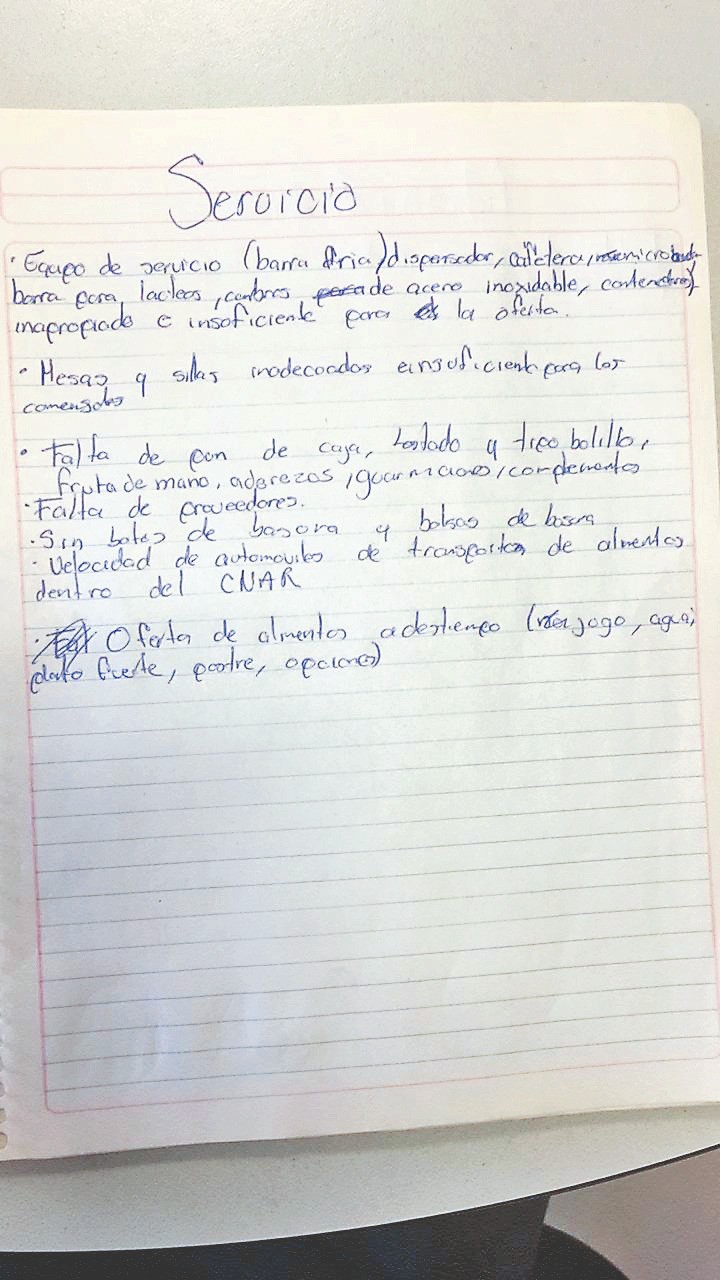 Servicio
· Equipo de servicio (barra fria) dispensador, cafetera, microondas
barra para lacteos, de acero inoxidable, contenedores)
inapropiado e insoficiente para la oferta.
· Mesas y sillas inadecoadas e insuficient para los
comensales
· Falta de pan de caja, tostado y tipo bolillo,
fruta de mano, aderezos, guarniciones, complementos
· Falta de proveedores.
· Sin botes de basora y bolsas de basura
· Velocidad de automoviles de transportes de alimentos
dentro del CNAR
· Oferta de alimentos a destiempo (jogo, agua,
plato fuerte, postre, opciones)